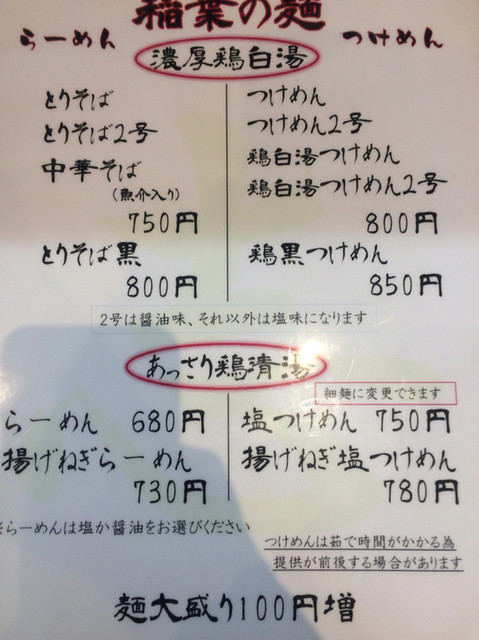 稲葉の麺
らーめん
つけめん
濃厚鶏白湯
とりそば
とりそば2号
中華そば
(魚介入り)
750円
とりそば黒
800円
つけめん
つけめん2号
鶏白湯つけめん
鶏白湯つけめん2号
800円
鶏黒つけめん
850円
2号は醤油味、それ以外は塩味になります
あっさり鶏清湯
細麺に変更できます
らーめん 680円
揚げねぎらーめん
730円
塩つけめん 750円
揚げねぎ塩つけめん
780円
※らーめんは塩か醤油をお選びください
つけめんは茹で時間がかかる為
提供が前後する場合があります
麺大盛り100円増